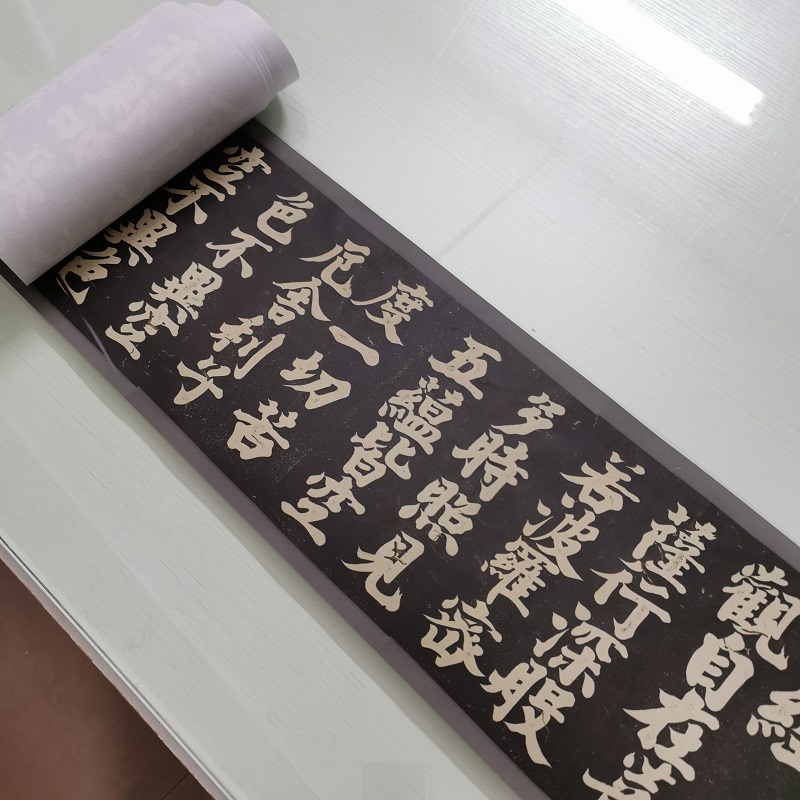 經
觀自在菩
薩行深般
若波羅密
多時照見
五蘊皆空
度一切苦
厄舍利子
色不異空
空不異色